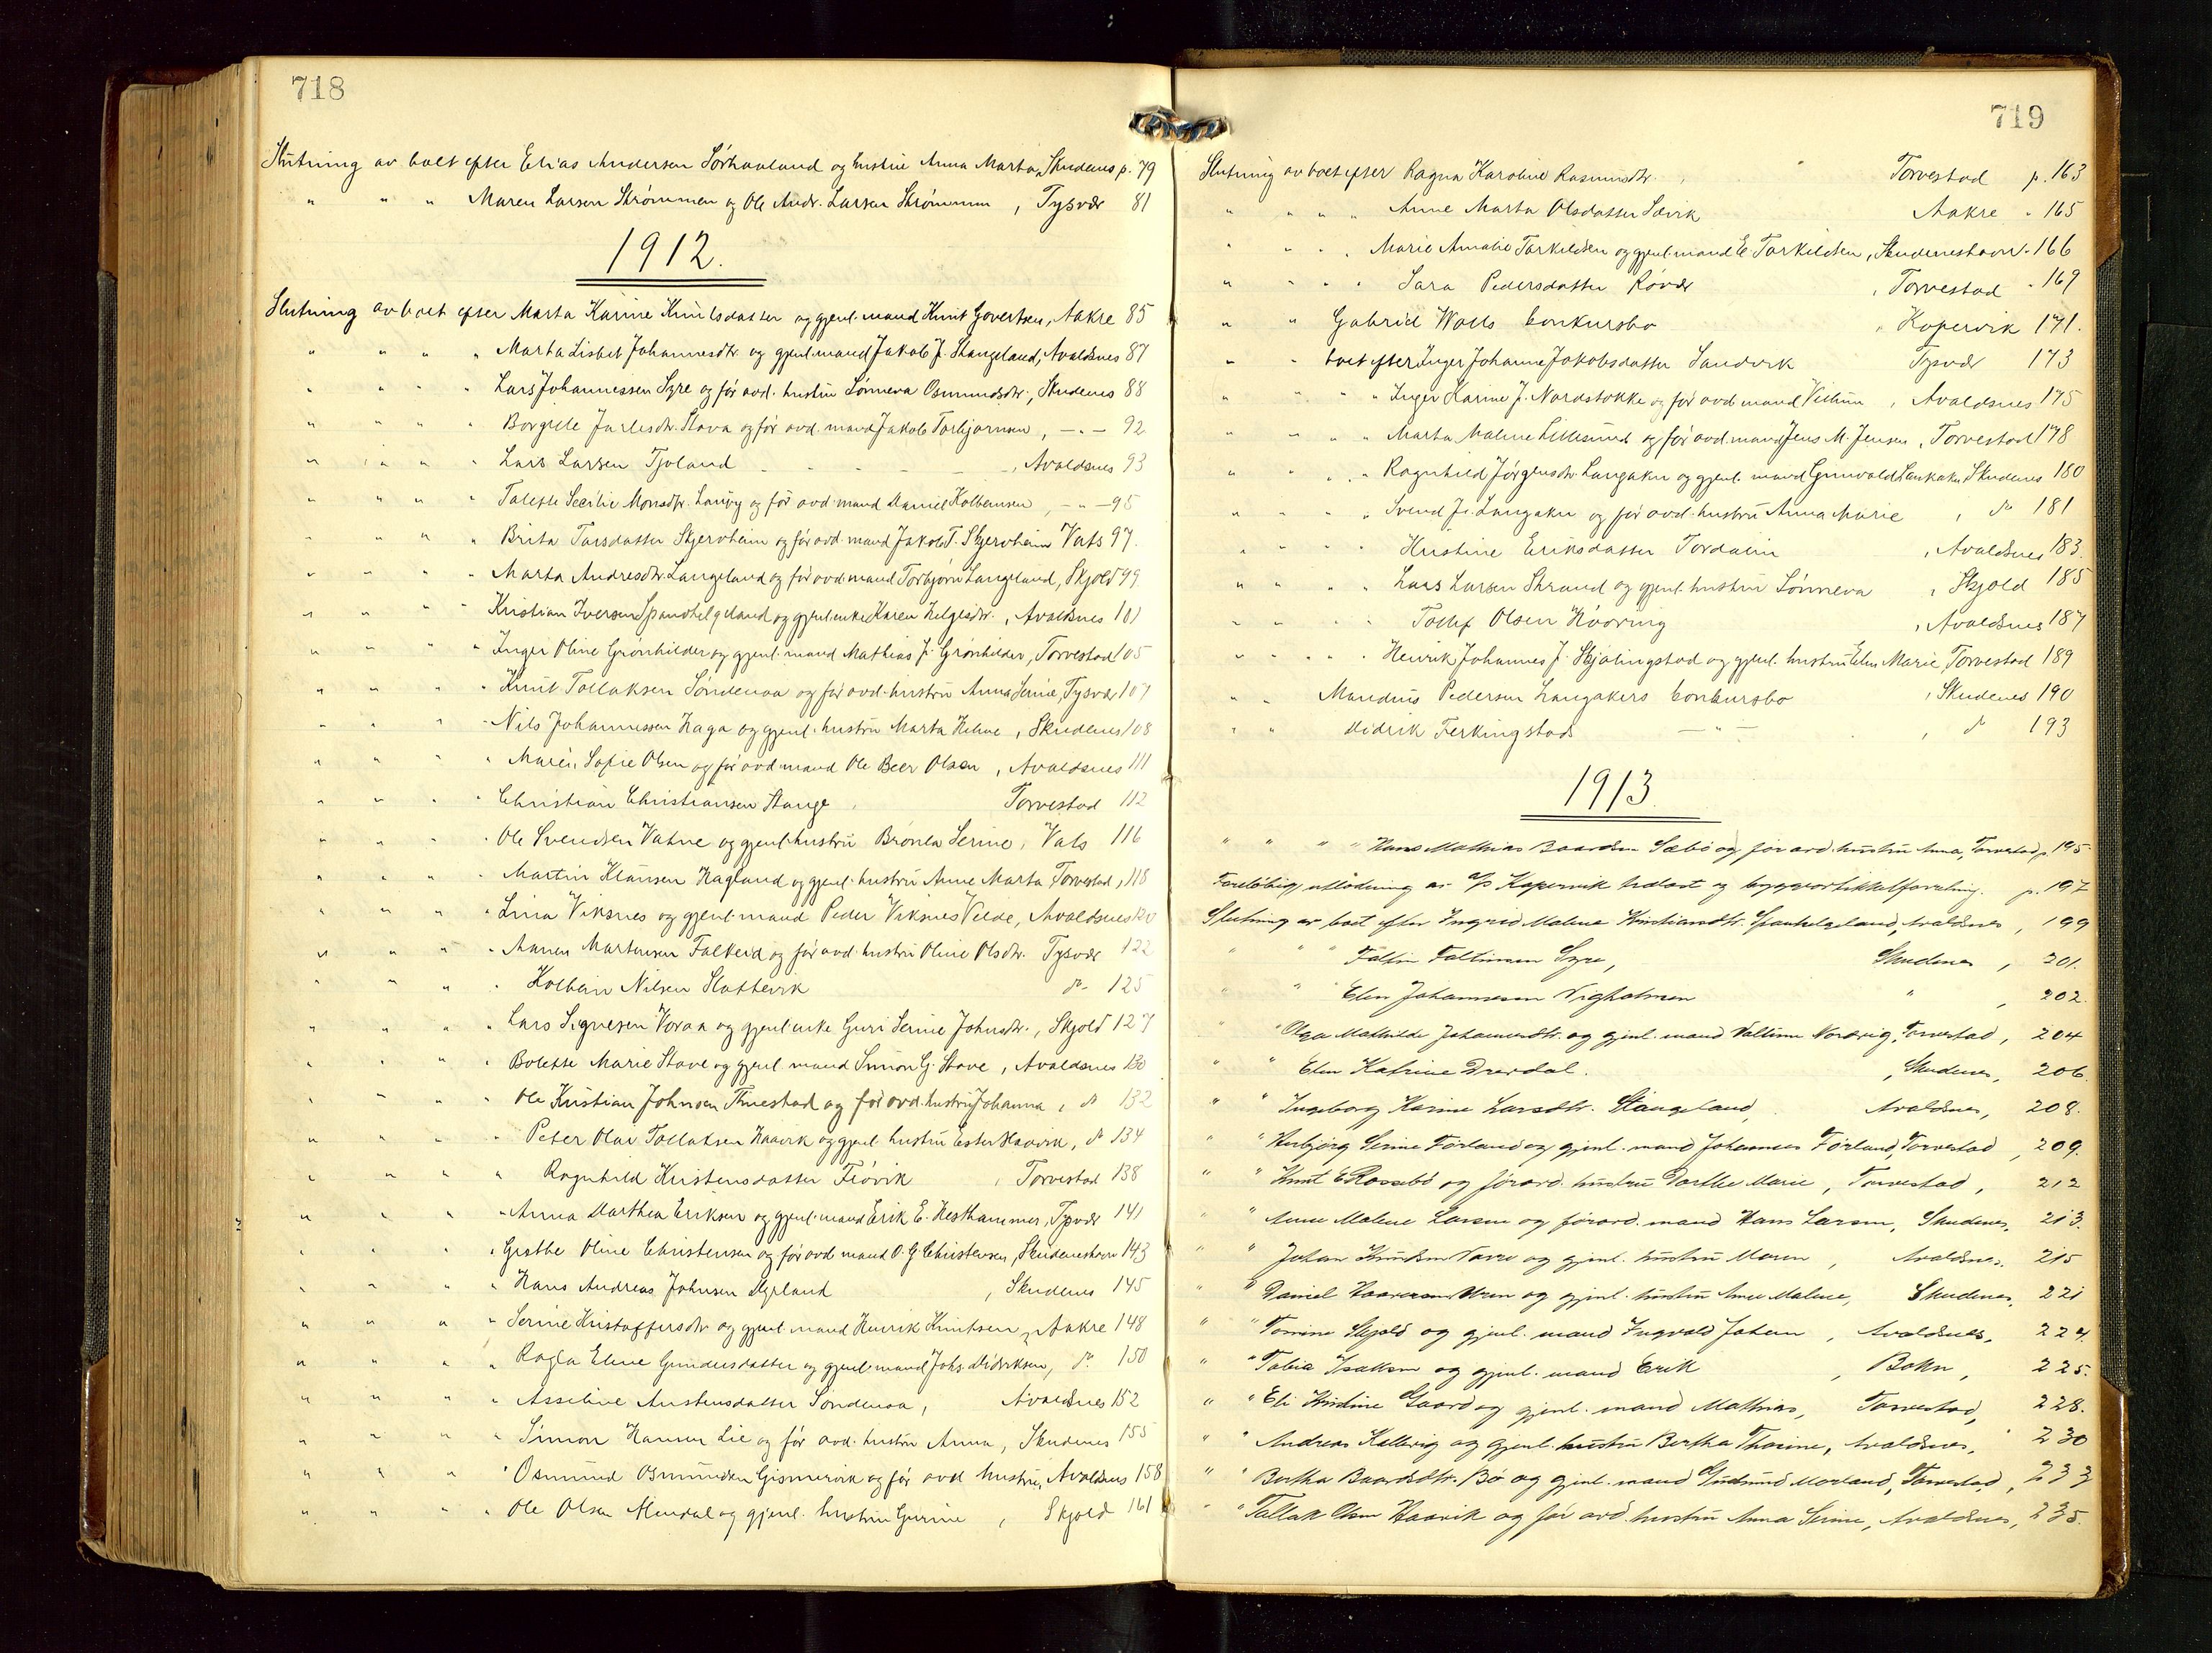 718
Slutning av boet efter Elias Andersen Sørhaaland og hustru Anna Marta, Skudenes p. 79
" " " Maren Larsen Strømmen og Ole Andr. Larsen Strømmen, Tysvær 81
1912.
Slutning av boet efter Marta Karine Knutsdatter og gjenl. mand Knut Govertsen, Aakre 85
" " " " Marta Lisbet Johannesdtr. og gjenl. mand Jakob J. Stangeland, Avaldsnes 87
" " " " Lars Johannessen Syre og før avd. hustru Sønneva Osmundsdtr., Skudenes 88
" " " " Borgille Jarlesdtr. Stava og før avd. mand Jakob Torbjørnsen, — " — 92
" " " " Lars Larsen Tjoland, Avaldsnes 93
" " " " Talette Secilie Monsdtr. og før avd. mand Daniel Kolbeinsen, — " — 95
" " " " Brita Larsdatter Skjerveheim og før avd. mand Jakob T. Skjerveheim Vats 97.
" " " " Marta Andresdtr. Langeland og før avd. mand Torbjørn Langeland, Skjold 99
" " " " Kristian Iversen Spandhelgeland og gjenl. enke Karen Helgesdtr., Avaldsnes 101
" " " " Inger Oline Grønhilder og gjenl. mand Mathias J. Grønhilder, Torvestad 105
" " " " Knut Tollaksen Søndenaa og før avd. hustru Anna Serine, Tysvær 107
" " " " Nils Johannessen Haga og gjenl. hustru Marta Helene, Skudenes 108
" " " " Maren Sofie Olsen og før avd. mand Ole Beer Olsen, Avaldsnes 111
" " " " Christian Christiansen Stange, Torvestad 112
" " " " Ole Svendsen Vatne og gjenl. hustru Serine, Vats 116
" " " " Martin Klausen Hagland og gjenl. hustru Anne Marta, Torvestad, 118
" " " " Lina Viksnes og gjenl. mand Peder Viksnes Velde, Avaldsnes 120
" " " " Martensen Falkeid og før avd. hustru Oline Olsdtr. Tysvær 122
" " " " Kolbein Nilsen Slattevik do 125
" " " " Lars Signesen Voraa og gjenl. enke Guri Serine Johnsdtr., Skjold 127
" " " " Bolette Marie Stave og gjenl. mand Simon G. Stave, Avaldsnes 130
" " " " Ole Kristian Johnsen Tuestad og før avd. hustru Johanna, do 132
" " " " Peter Olai Tollaksen Haavik og gjenl. hustru Ester Haavik, do 134
" " " " Ragnhild Kristensdatter Feøvik, Torvestad 138
" " " " Anna Darthea Eriksen og gjenl. mand Erik E. Hesthammer, Tysvær 141
" " " " Grethe Oline Christensen og før avd. mand O. G. Christensen, Skudeneshavn 143
" " " " Hans Andreas Johnsen Dyrland, Skudenes 145
" " " " Serine Kristoffersdtr og gjenl. mand Henrik Knutsen, Aakre 148
" " " " Ragla Eline Gundersdatter og gjenl. mand Johs. Didriksen, do 150
" " " " Asseline Austensdatter Søndenaa, Avaldsnes 152
" " " " Simon Hansen Lie og før avd. hustru Anna, Skudenes 155
" " " " Osmund Osmundsen Gismervik og før avd. hustru, Avaldsnes 158
" " " " Ole Olsen Alundal og gjenl. hustru Gurine, Skjold 161
719
Slutning av boet efter Ragna Karoline Rasmusdtr. Torvestad p. 163
" " " " Anne Marta Olsdatter Sævik Aakre " 165
" " " Marie Amalie Torkildsen og gjenl. mand E. Torkildsen, Skudeneshavn " 166
" " " " Sara Pedersdatter Røvær, Torvestad " 169
" " Gabriel Walls konkursbo, Kopervik 171.
" " boet efter Inger Johanne Jakobsdatter Sandvik Tysvær 173
" " " " Inger Karine J. Nordstokke og før avd. mand Villum, Avaldsnes 175
" " " " Marta Malene Lillesund og før avd. mand Jens M. Jensen, Torvestad 178
" " " Ragnhild Jørgensdtr. Langaker og gjenl. mand Grunvald Langaker, Skudenes 180
" " " " Svend J. Langaker og før avd. hustru Anna Marie, do 181
" " " " Kristine Eriksdatter Tordalen, Avaldsnes 183.
" " " " Lars Larsen Strand og gjenl. hustru Sønneva, Skjold 185
" " " " Tollef Olsen Kvaring, Avaldsnes 187
" " " " Henrik Johannes J. Skjølingstad og gjenl. hustru Elen Marie, Torvestad 189
" " Mandius Pedersen Langakers konkursbo, Skudenes 190
" " Didrik Ferkingstads — " —, do 193
1913.
" " " " Hans Mathias Baardsen Sæbø og før avd. hustru Anna, Torvestad p. 195
Foreløbig utlodning av A/S Kopervik trælast og bygveartikkelforretning. p. 197
Slutning av boet efter Ingrid Malene Kristiansdtr. Spanhelgeland, Avaldsnes, 199
" " " Faltin Faltinsen Syre, Skudenes, 201.
" " Elen Johannesen Vigholmen " , 202.
" " Olga Mathilde Johannesdtr. og gjenl. mand Valtinn Nordvig, Torvestad, 204
" " Elen Katrine Dreidal., Skudenes, 206.
" " Ingeborg Karine Larsdtr. Stangeland, Avaldsnes, 208.
" " Herbjørg Serine Førland og gjenl. mand Johannes Førland, Torvestad, 209.
" " Knut E Rossebø og før avd. hustru Dorthe Marie, Torvestad, 212
" " Anne Malene Larsen og før avd. mand Hans Larsen, Skudenes, 213.
" " Johan Knudsen Våre og gjenl. hustru Maren, Avaldsnes, 215
" " Daniel Haavarsen Uren og gjenl. hustru Anne Malene, Skudenes, 221
" " Tomine Skjold og gjenl. mand Ingvald Johan, Avaldsnes, 224.
" " Tabia Isaksen og gjenl. mand Erik, Bokn, 225.
" " Eli Kristine Gaard og gjenl. mand Mathias, Torvestad, 228.
" " Andreas Kallevig og gjenl. hustru Bertha Thorine, Avaldsnes, 230
" " Bertha Baardsdtr. Bø og gjenl. mand Gudmund Morland, Torvestad, 233
" " Tollak Olsen Haavik og før avd. hustru Anna Serine, Avaldsnes, 235.